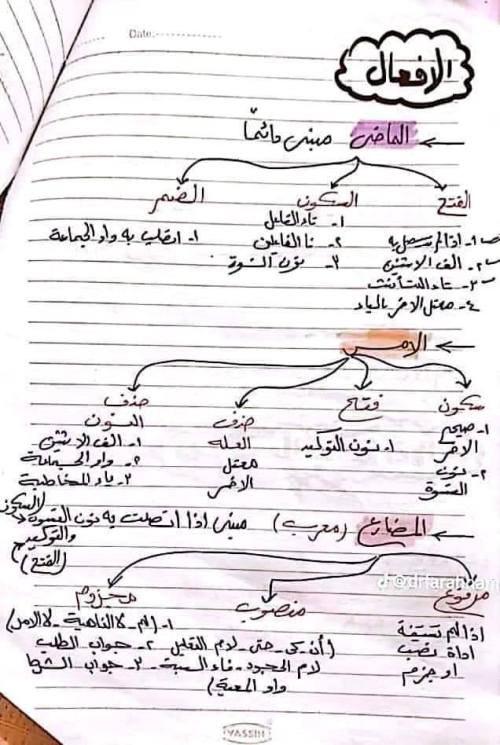 Date:
الافعال
الماضى مبنى دائماً
الفتح
١- اذا لم يتصل به
٢- الف الاثنين
٣- تاء التأنيث
٤- معتل الاخر بالياء
السكون
١- تاء الفاعل
٢- نا الفاعلين
٣- نون النسوة
الضم
١- اتصلت به واو الجماعة
الامر
سكون
١- صحيح
الاخر
٢- نون
النسوة
فتح
١- نون التوكيد
حذف
العلة
معتل
الاخر
حذف
النون
١- الف الاثنين
٢- واو الجماعة
٣- ياء المخاطبة
المضارع (معرب) مبنى اذا اتصلت به نون النسوة (السكون)
والتوكيد
(الفتح)
مرفوع
اذا لم تسبقه
اداة نصب
او جزم
منصوب
(أن - كى - حتى - لام التعليل
لام الجحود - فاء السببية
واو المعية)
مجزوم
١- (لم - لا الناهية - لام الامر)
٢- جواب الطلب
٣- جواب الشرط
YASSIN